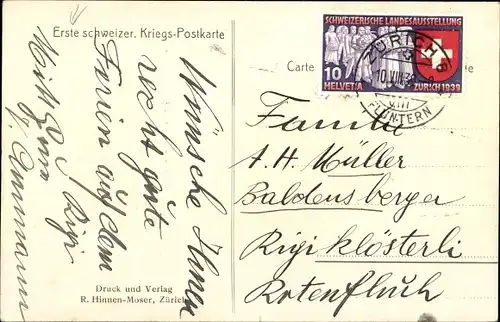 Erste schweizer. Kriegs-Postkarte
Carte
SCHWEIZERISCHE LANDESAUSSTELLUNG
10
HELVETIA
ZÜRICH 1939
ZÜRICH 8
10.VIII.39
FLUNTERN
Wünsche Ihnen
recht gute
Ferien auf dem
Rigi
Mit Gruss
Ammann
Familie
A.H. Müller
Baldensberger
Rigi Klösterli
Rotenfluh
Druck und Verlag
R. Hinnen-Moser, Zürich